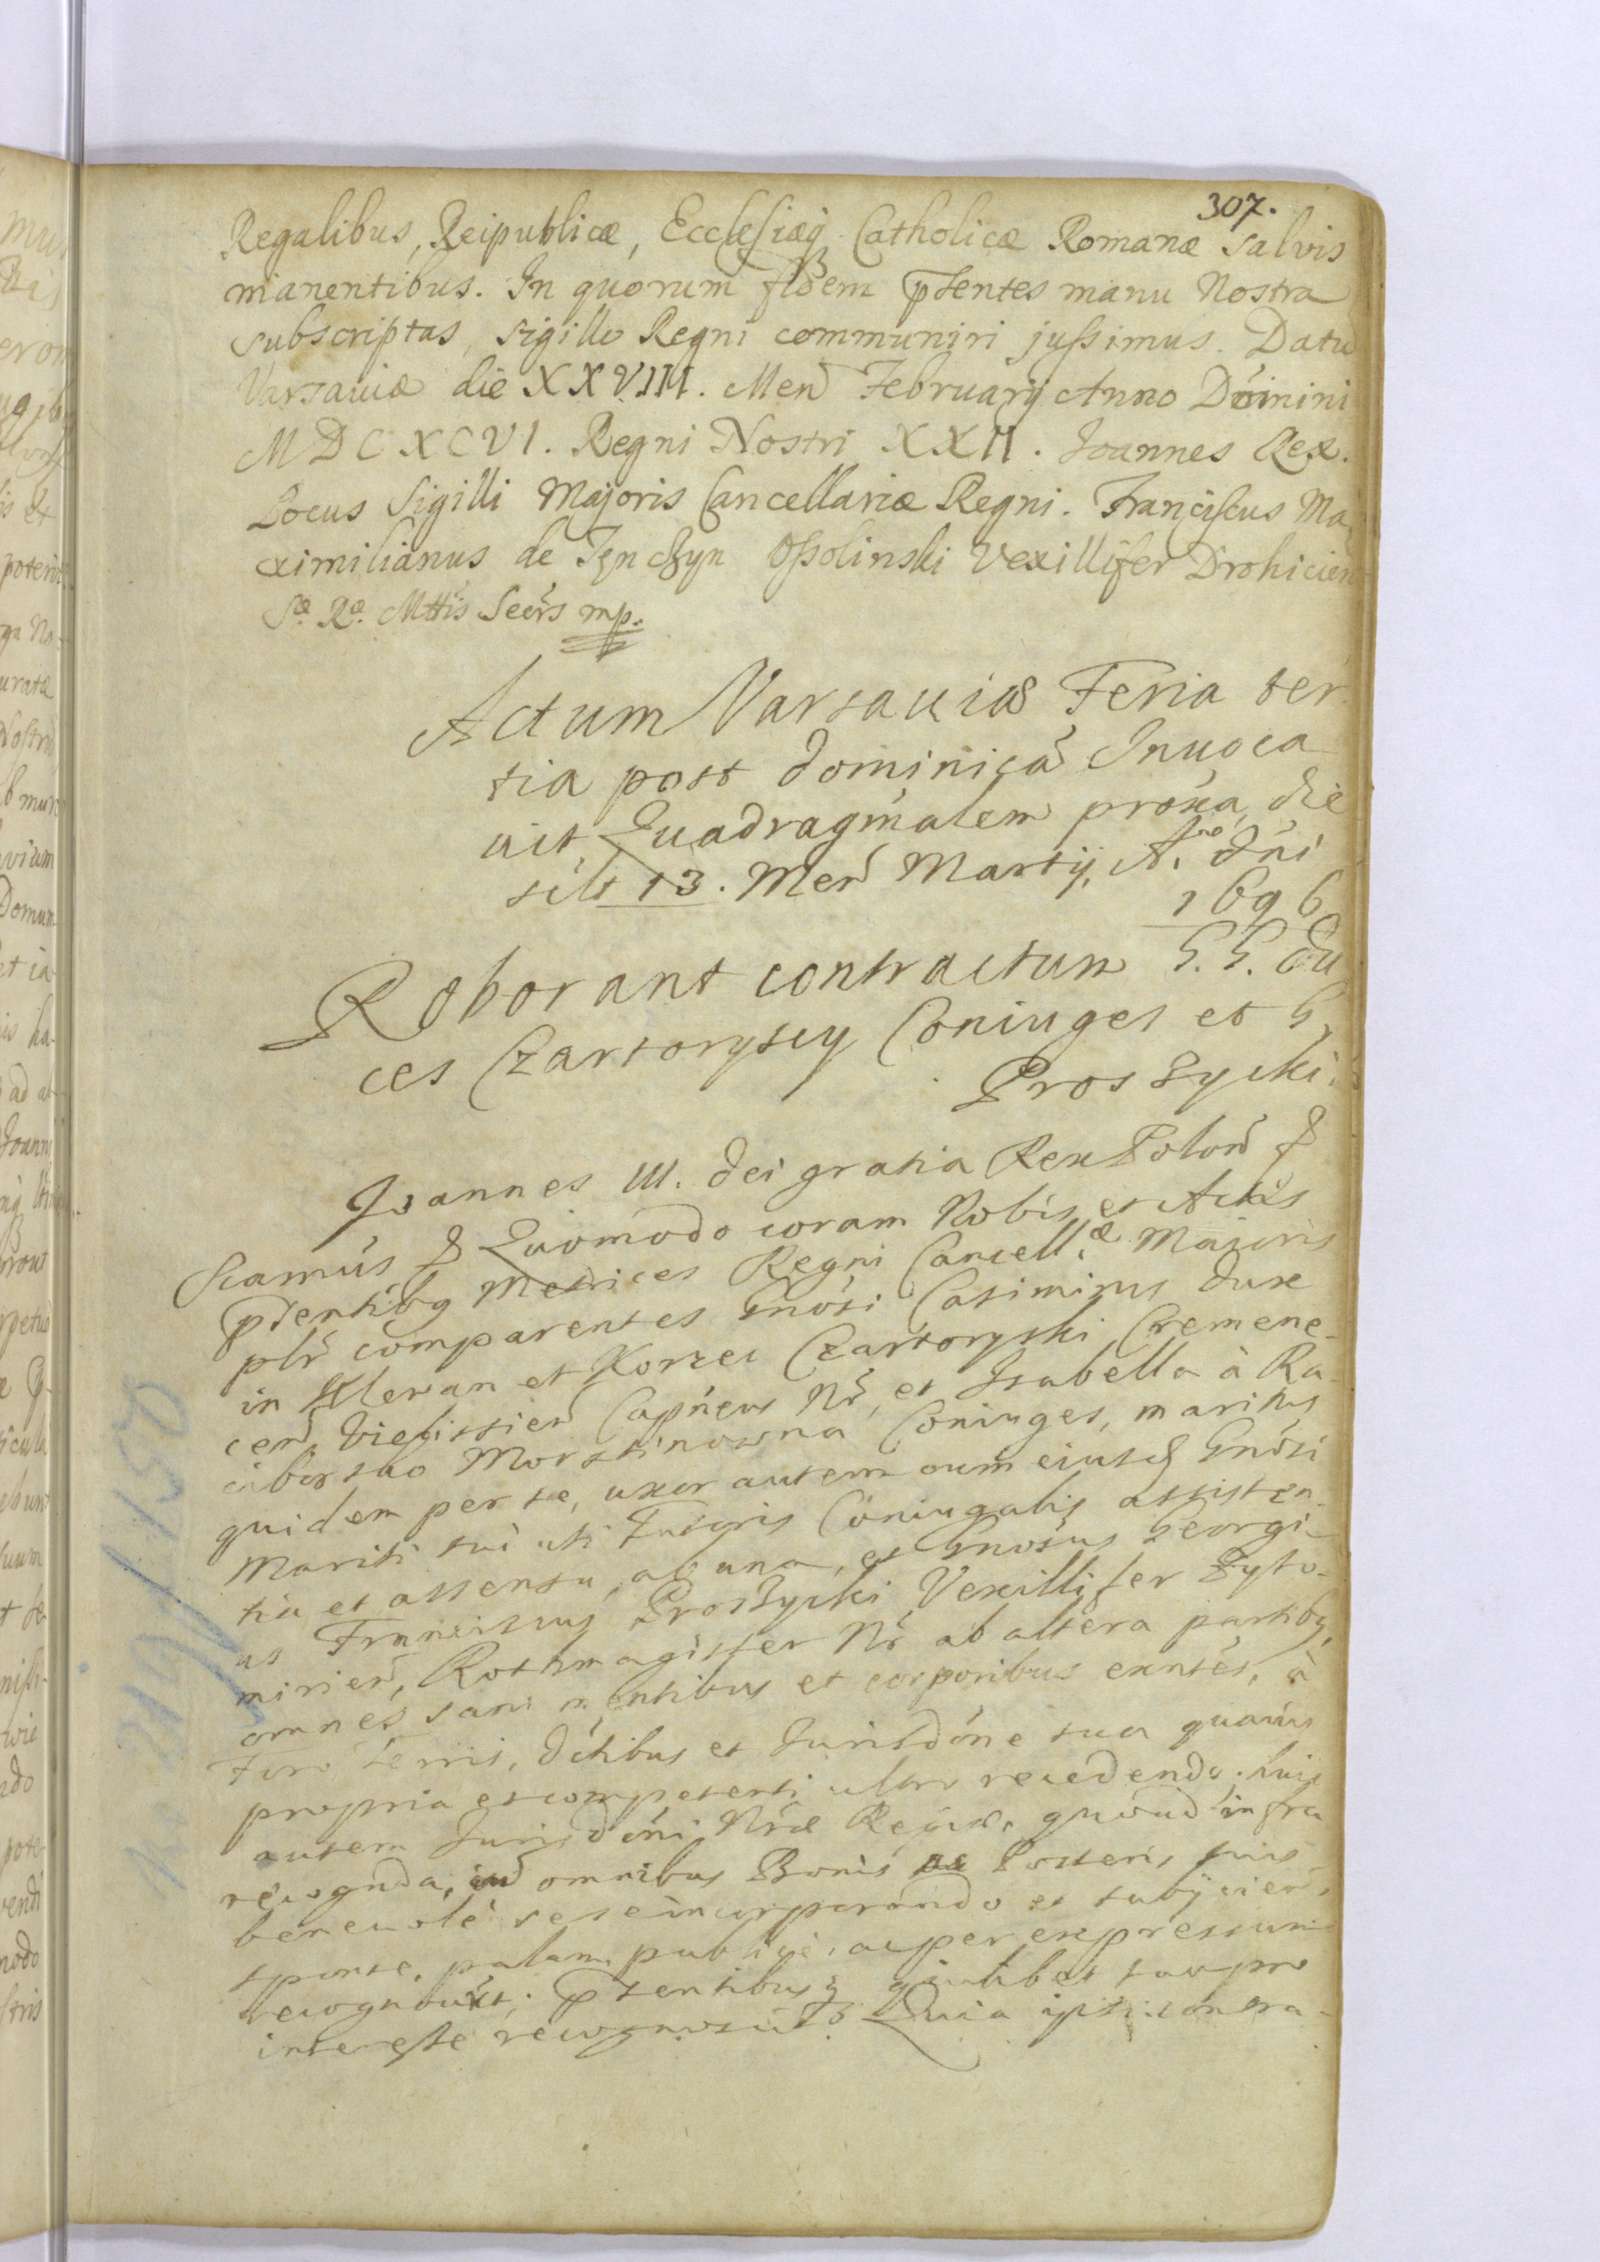 307.
Regalibus, Reipublicæ, Ecclesiæq Catholicæ Romanæ salvis
manentibus. In quorum fidem pntentes manu Nostra
subscriptas, sigillo Regni communiri jussimus. Datu
Varsaviæ die XXVIII. Men Februarij Anno Domini
MDCXCVI. Regni Nostri XXII. Joannes Rex.
Locus Sigilli Majoris Cancellariæ Regni. Franciscus Ma
ximilianus de Tenczyn Ossolinski Vexillifer Drohicien
Sæ Ræ Mttis Secrs mp.
Actum Varsauiæ Feria ter
tia post dominicã Inuoca
uit Quadragmalem proxa, die
silt 13. Men Martij, Ao dni
1696
Roborant contractum G. G. Du
ces Czartoryscy Coniuges et G,
Proszycki.
Joannes III. Dei gratia Rex Polon &
Scamus & Quomodo coram Nobis et Actis
pntentibq Metrices Regni Cancellæ Maioris
plr comparentes Gnosi Casimirus Dux
in Klewan et Korzec Czartoryski Cremene-
cen Capneus Nr, et Isabella à Ra-
ciborsko Morstinowna Coniuges, maritus
quidem per se, uxor autem cum eiusd Gnosi
Mariti sui uti Tutoris Coniugalis assisten-
tia et assensu, ab una, et Gnosus Georgi-
us Franciscus Proszycki Vexillifer Zyto-
mirien, Rothmagister Nr ab altera partibq,
omnes sani mentibus et corporibus exntes, à
Foro terris, dctibus et Jurisdone sua quauis
propria et competenti ultro recedendo. huic
autem Jurisdoni Nræ Regiæ, quoad infra
recognda, cu omnibus Bonis ac Posteris suis
beneuolé sese incorporando et subijcien,
sponte, palam publicé, ac per expressum
recognouit; pntentibusq quilibet suo pro
interesse recognoscut Quia ipsi contra-